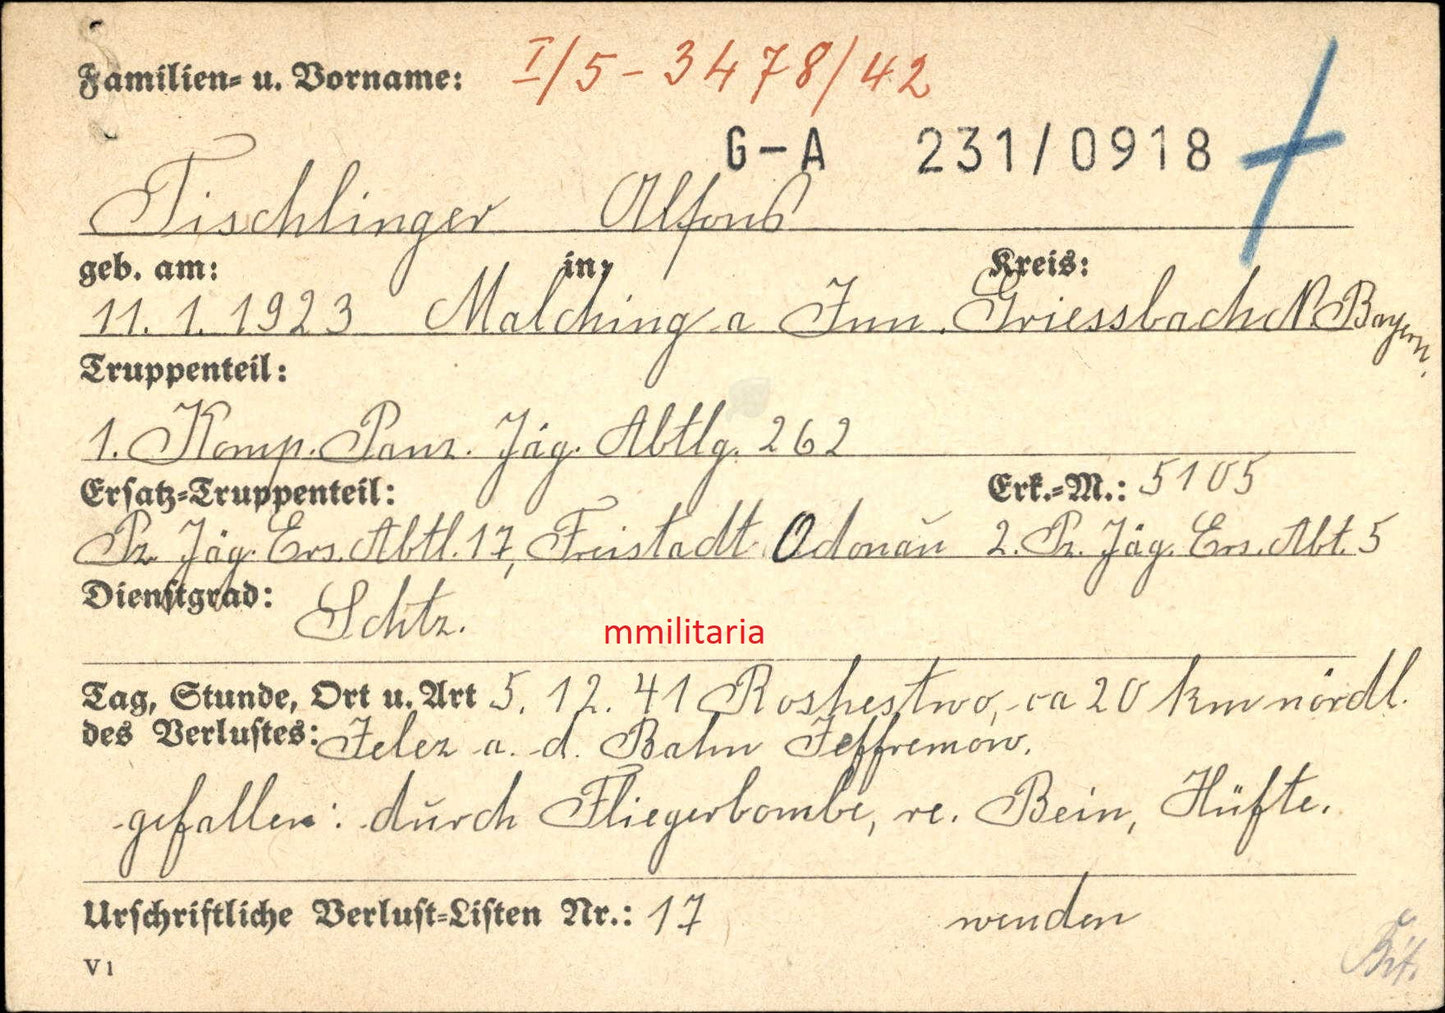 Familien- u. Vorname: I/5 - 3478/42
G-A 231/0918
Tischlinger Alfons
geb. am: in: Kreis:
11. 1. 1923 Malching a Inn. Griessbach N. Bayern.
Truppenteil:
1. Komp. Panz. Jäg. Abtlg. 262
Ersatz-Truppenteil: Erk.-M.: 5105
Pz. Jäg. Ers. Abtl. 17, Freistadt Odonau 2. Pz. Jäg. Ers. Abt. 5
Dienstgrad: Schtz.
mmilitaria
Tag, Stunde, Ort u. Art 5. 12. 41 Roshestwo, ca 20 km nördl.
des Verlustes: Jelez a. d. Bahn Jeffremow.
gefallen: durch Fliegerbombe, re. Bein, Hüfte.
Urschriftliche Verlust-Listen Nr.: 17 wenden
V 1